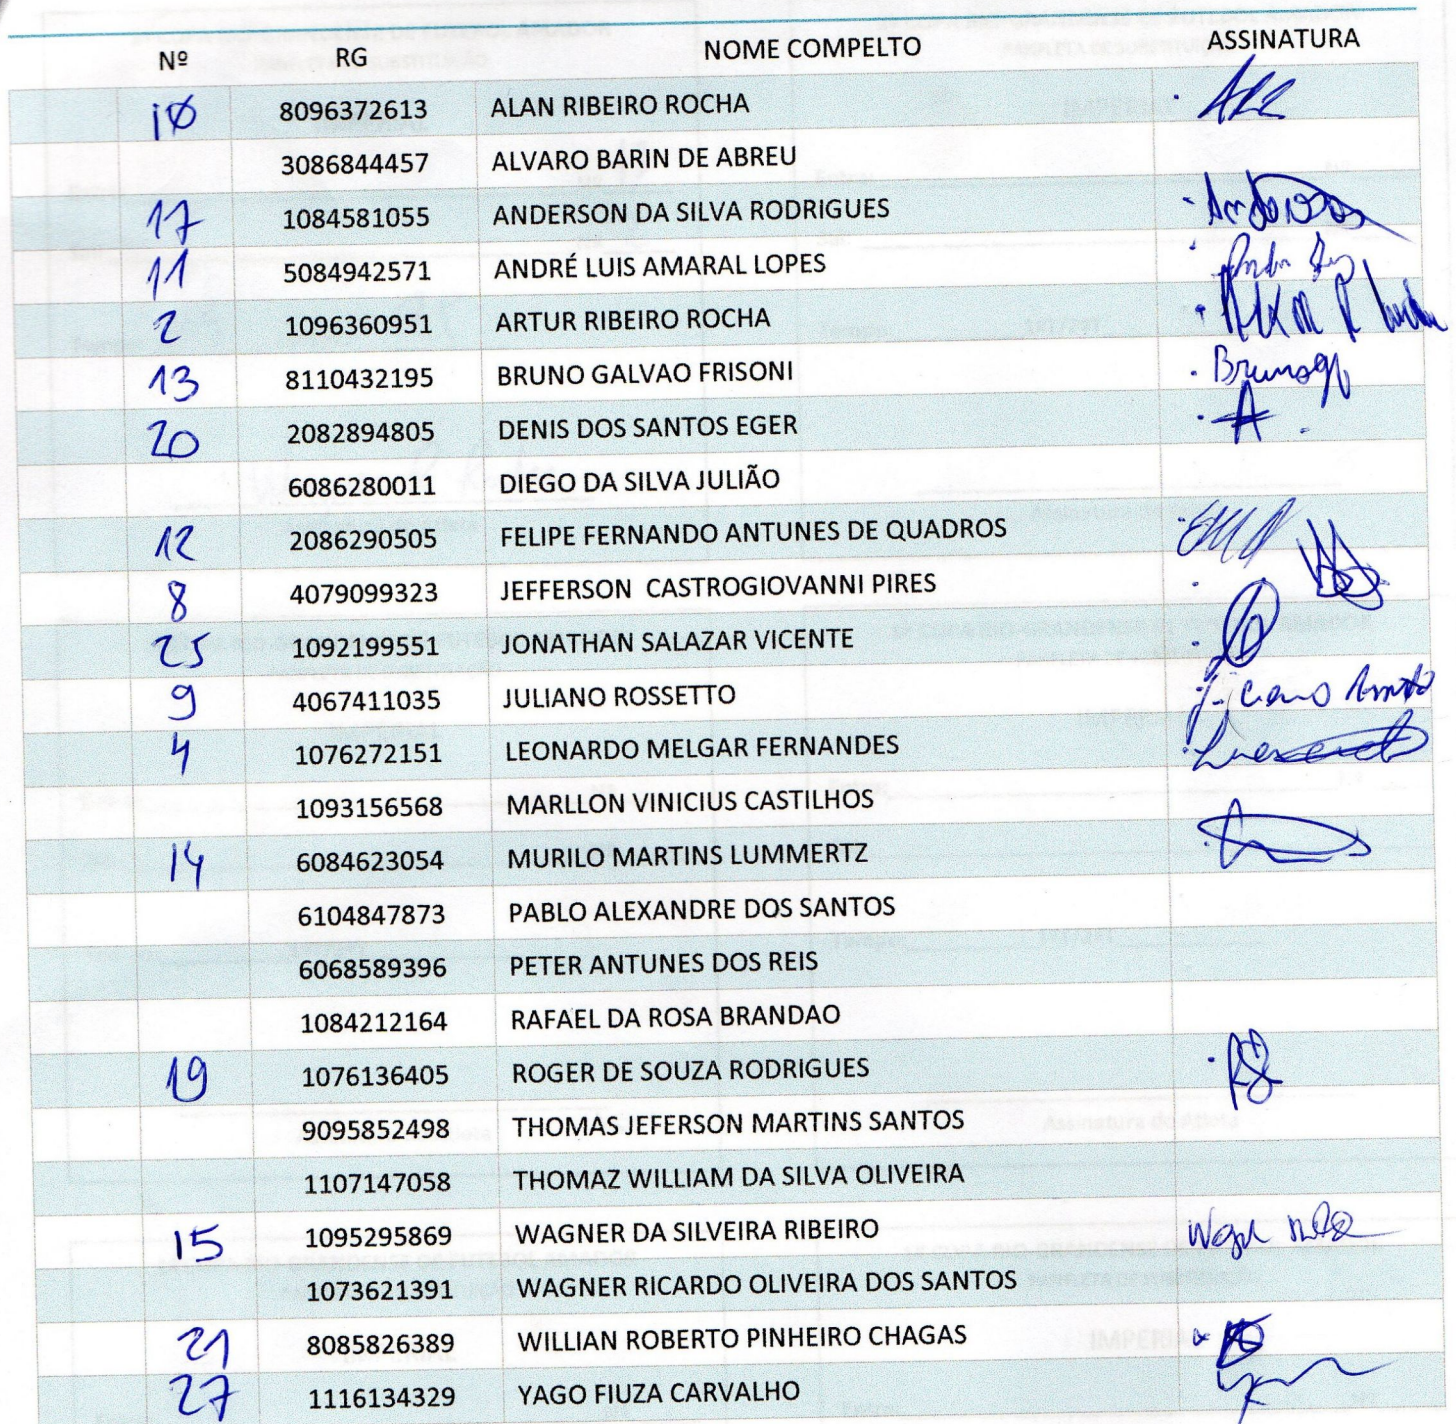 Nº RG NOME COMPELTO ASSINATURA
10 8096372613 ALAN RIBEIRO ROCHA
3086844457 ALVARO BARIN DE ABREU
17 1084581055 ANDERSON DA SILVA RODRIGUES Anderson
11 5084942571 ANDRÉ LUIS AMARAL LOPES
2 1096360951 ARTUR RIBEIRO ROCHA
13 8110432195 BRUNO GALVAO FRISONI
20 2082894805 DENIS DOS SANTOS EGER
6086280011 DIEGO DA SILVA JULIÃO
12 2086290505 FELIPE FERNANDO ANTUNES DE QUADROS
8 4079099323 JEFFERSON CASTROGIOVANNI PIRES
25 1092199551 JONATHAN SALAZAR VICENTE
9 4067411035 JULIANO ROSSETTO
4 1076272151 LEONARDO MELGAR FERNANDES
1093156568 MARLLON VINICIUS CASTILHOS
14 6084623054 MURILO MARTINS LUMMERTZ
6104847873 PABLO ALEXANDRE DOS SANTOS
6068589396 PETER ANTUNES DOS REIS
1084212164 RAFAEL DA ROSA BRANDAO
19 1076136405 ROGER DE SOUZA RODRIGUES
9095852498 THOMAS JEFERSON MARTINS SANTOS
1107147058 THOMAZ WILLIAM DA SILVA OLIVEIRA
15 1095295869 WAGNER DA SILVEIRA RIBEIRO
1073621391 WAGNER RICARDO OLIVEIRA DOS SANTOS
21 8085826389 WILLIAN ROBERTO PINHEIRO CHAGAS
27 1116134329 YAGO FIUZA CARVALHO